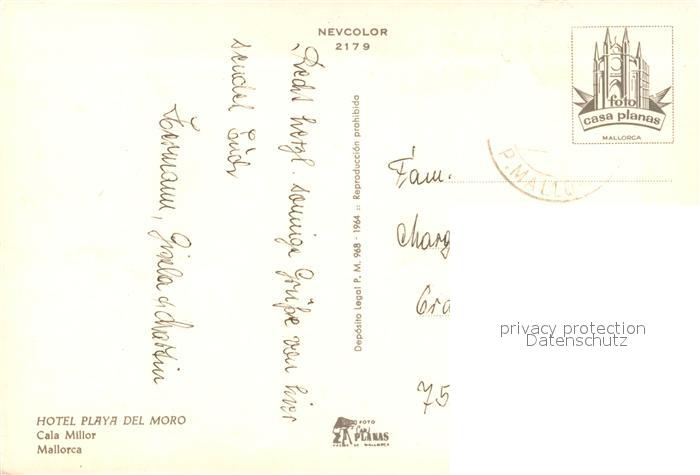 NEVCOLOR
2179
foto
casa planas
MALLORCA
P. MALLO
Recht herzl. sonnige Grüße von hier
sendet Euch
Hermann, Gisela & Martin
Depósito Legal P. M. 968 - 1964 :: Reproducción prohibida
Fam.
Marg
Gra
75
privacy protection
Datenschutz
HOTEL PLAYA DEL MORO
Cala Millor
Mallorca
FOTO
Casa
PLANAS
PALMA DE MALLORCA